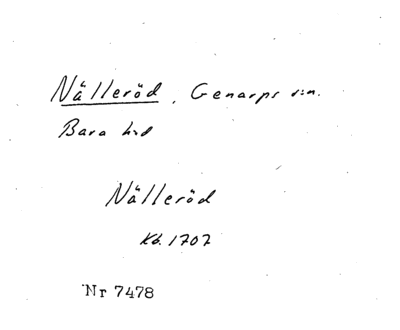 Nälleröd, Genarps s:n.
Bara hd
Nälleröd
Kb. 1707
Nr 7478